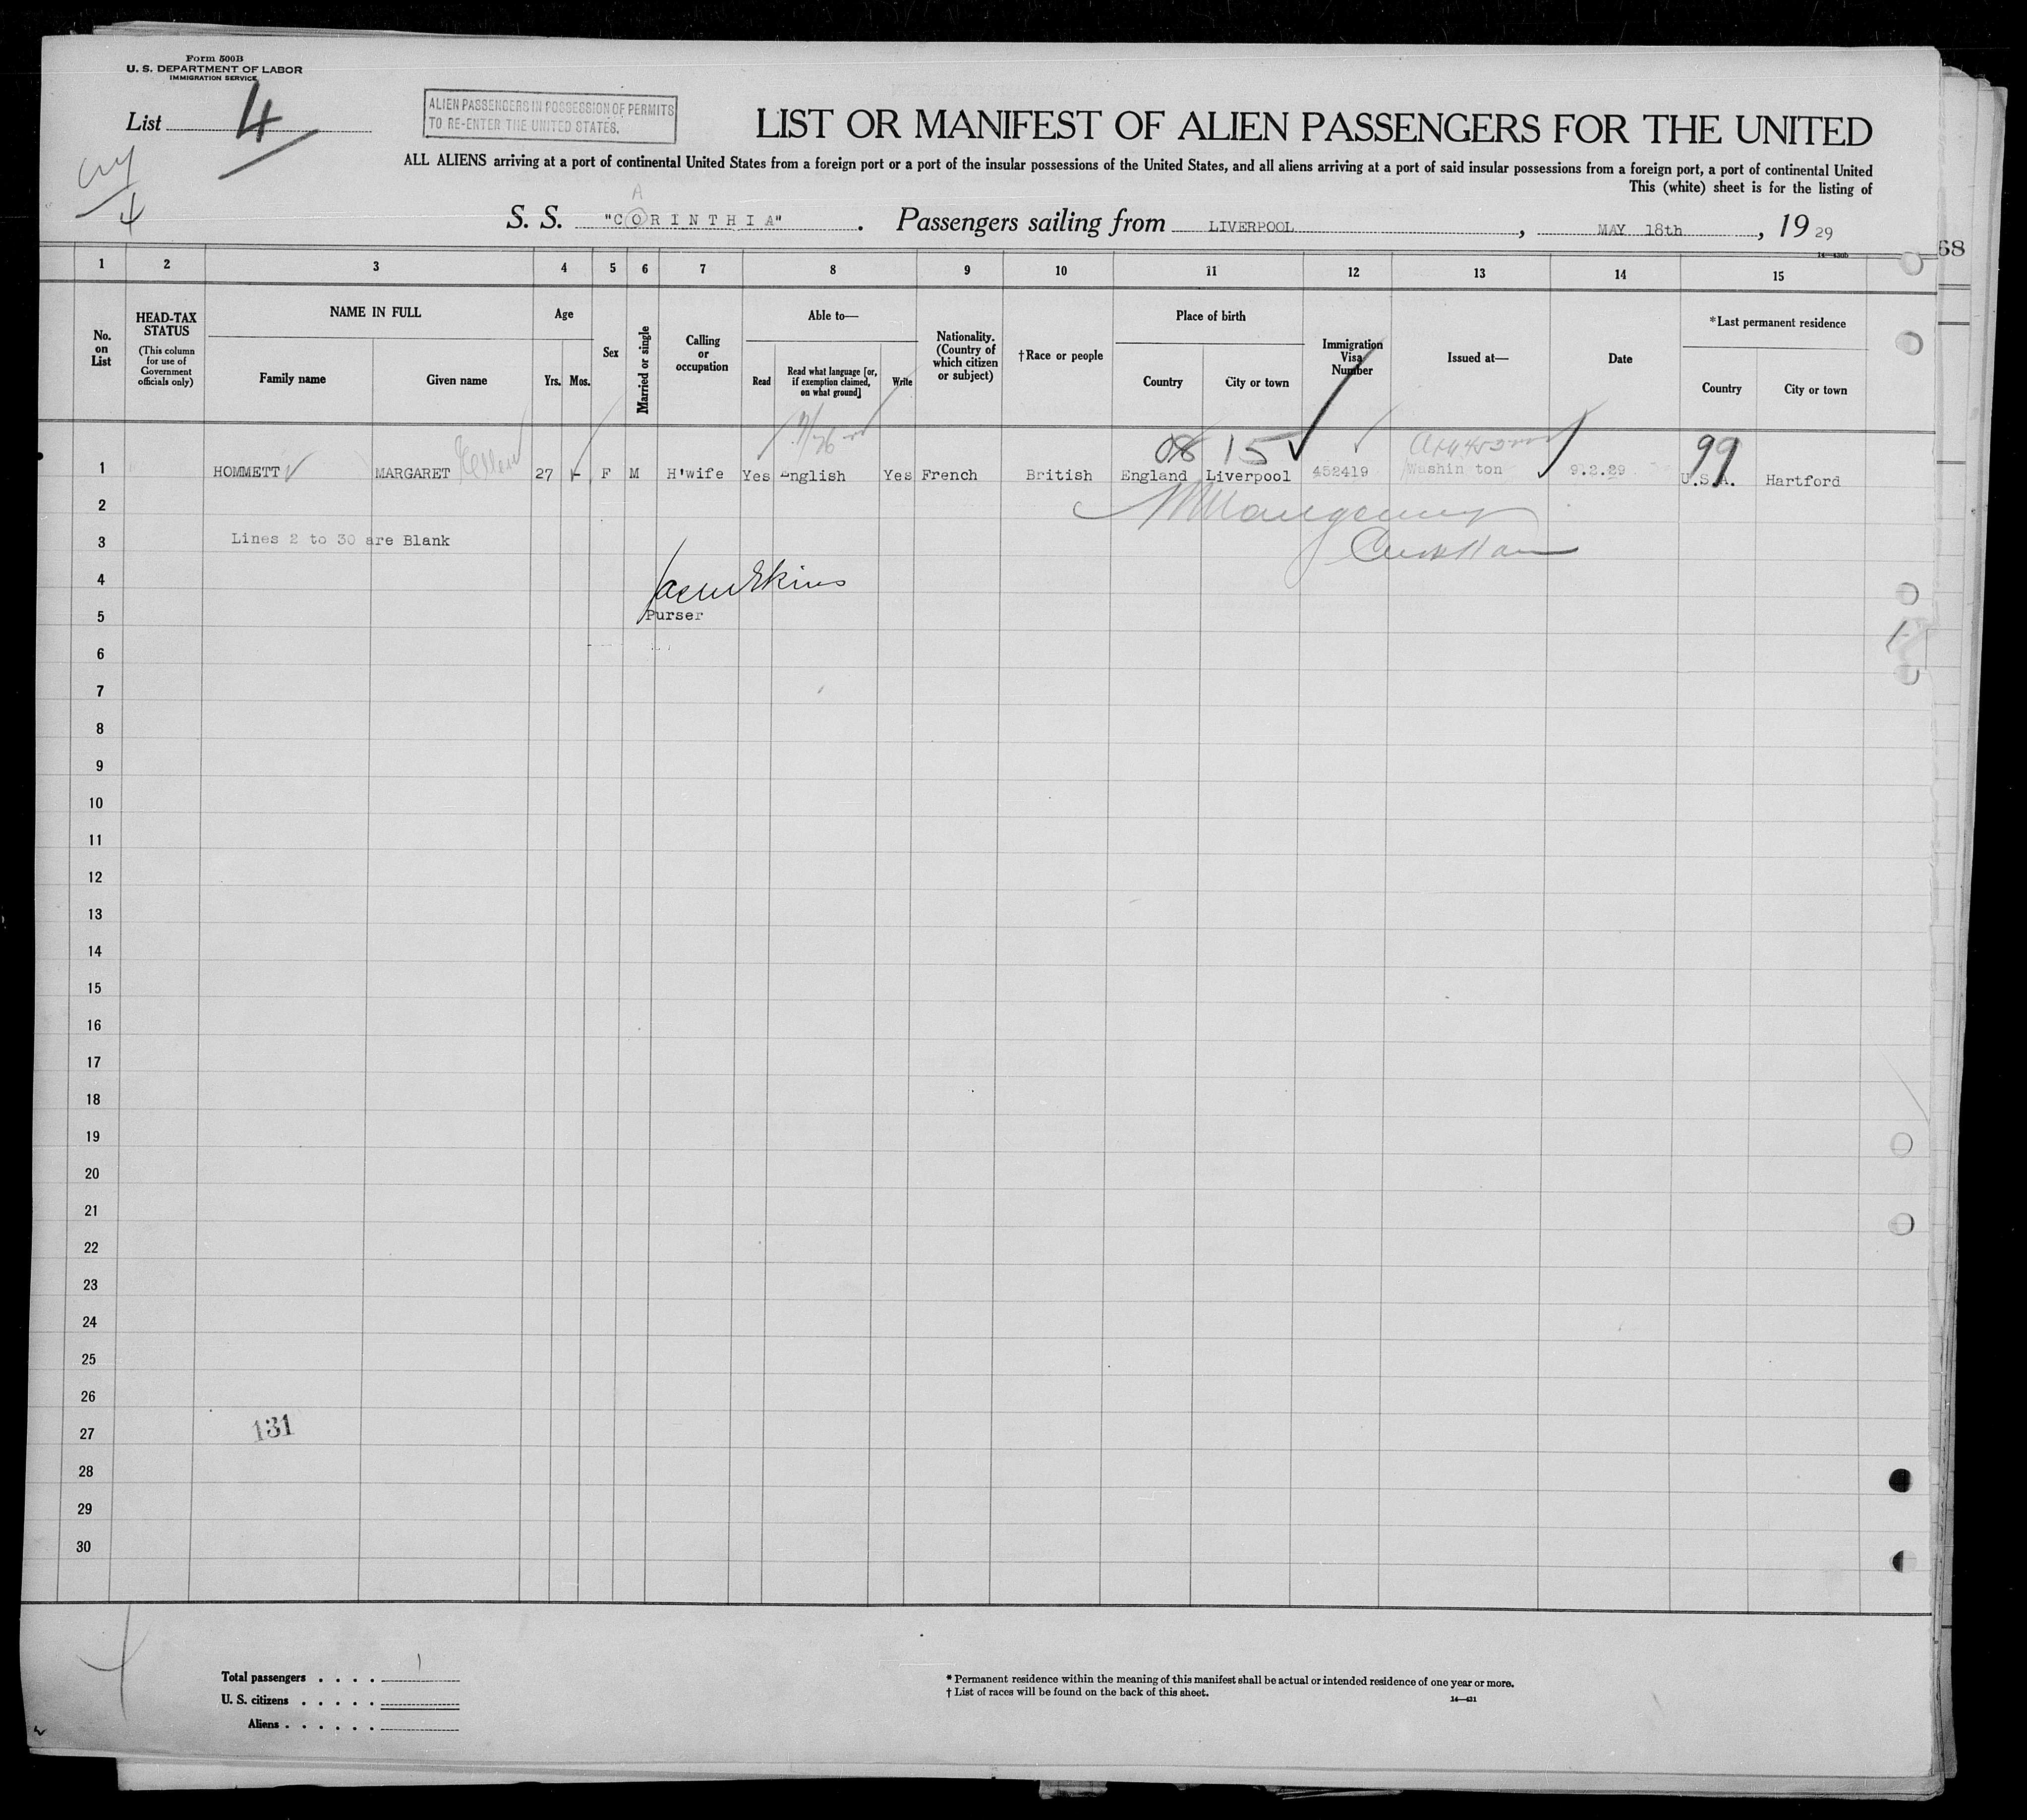 Form 500B
U. S. DEPARTMENT OF LABOR
IMMIGRATION SERVICE
List 4
ALIEN PASSENGERS IN POSSESSION OF PERMITS
TO RE-ENTER THE UNITED STATES.
LIST OR MANIFEST OF ALIEN PASSENGERS FOR THE UNITED
ALL ALIENS arriving at a port of continental United States from a foreign port or a port of the insular possessions of the United States, and all aliens arriving at a port of said insular possessions from a foreign port, a port of continental United
This (white) sheet is for the listing of
A
S. S. "CORINTHIA". Passengers sailing from LIVERPOOL, MAY 18th, 1929
14—430b
68
1 2 3 4 5 6 7 8 9 10 11 12 13 14 15
No. on List
HEAD-TAX STATUS (This column for use of Government officials only)
NAME IN FULL
Family name
Given name
Age
Yrs. Mos.
Sex
Married or single
Calling or occupation
Able to—
Read
Read what language [or, if exemption claimed, on what ground]
Write
Nationality. (Country of which citizen or subject)
†Race or people
Place of birth
Country
City or town
Immigration Visa Number
Issued at—
Date
*Last permanent residence
Country
City or town
08 15 99
1 HOMMETT MARGARET Ellen 27 - F M H'wife Yes English Yes French British England Liverpool 452419 Washin ton 9.2.29 U.S.A. Hartford
2
3 Lines 2 to 30 are Blank
4
5 Purser
6
7
8
9
10
11
12
13
14
15
16
17
18
19
20
21
22
23
24
25
26
27 131
28
29
30
Total passengers . . . . 1
U. S. citizens . . . . .
Aliens . . . . . .
* Permanent residence within the meaning of this manifest shall be actual or intended residence of one year or more.
† List of races will be found on the back of this sheet.
14—431